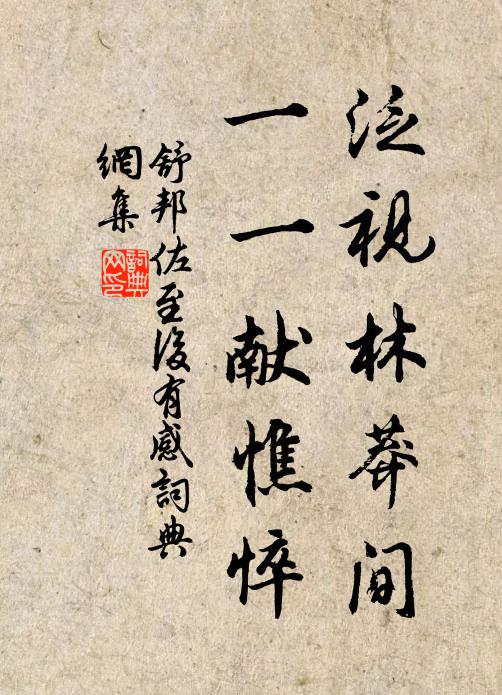 泛視林莽間
一一献憔悴
舒邦佐至後有感詞典
網集
詞典
网印